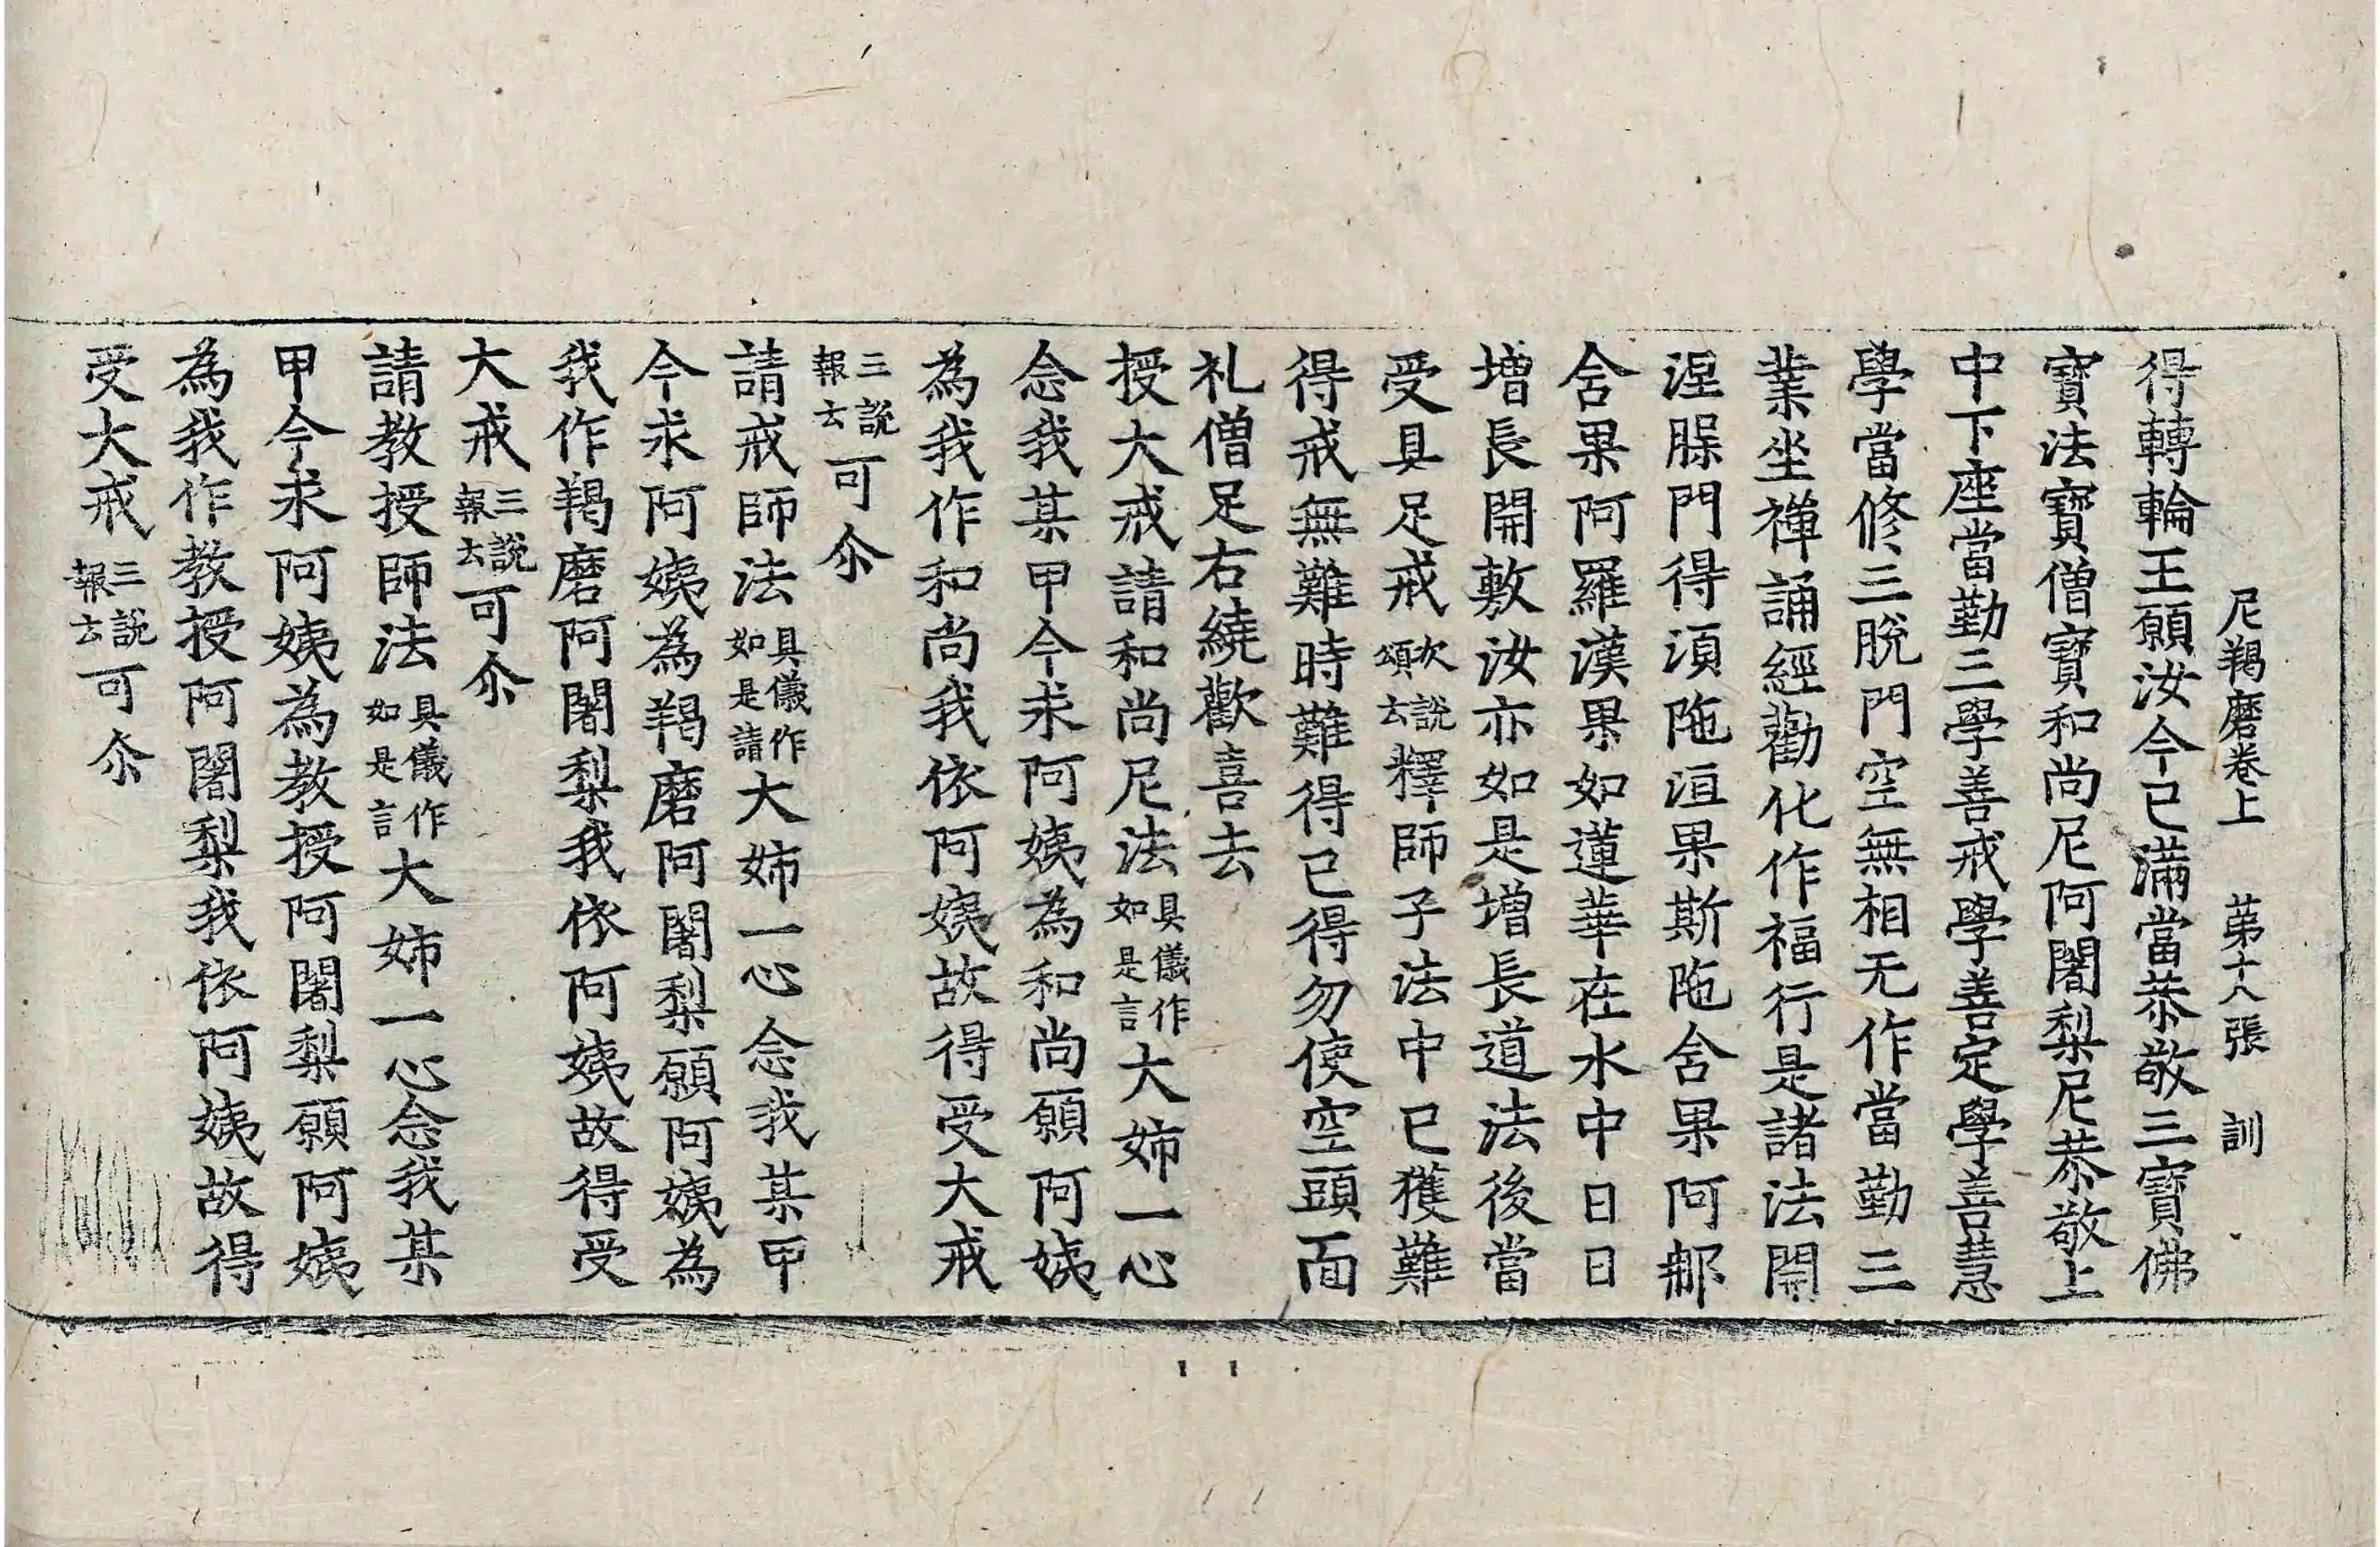 尼羯磨卷上　第十八張　訓
得轉輪王願汝今已滿當恭敬三寶佛
寶法寶僧寶和尚尼阿闍梨尼恭敬上
中下座當勤三學善戒學善定學善慧
學當修三脫門空無相无作當勤三
業坐禪誦經勸化作福行是諸法開
涅脲門得湏陁洹果斯陁舍果阿那
舍果阿羅漢果如蓮華在水中日日
增長開敷汝亦如是增長道法後當
受具足戒次說頌云釋師子法中已獲難
得戒無難時難得已得勿使空頭面
礼僧足右繞歡喜去
授大戒請和尚尼法具儀作如是言大姉一心
念我某甲今求阿姨為和尚願阿姨
為我作和尚我依阿姨故得受大戒
三說報云可尒
請戒師法具儀作如是請大姉一心念我某甲
今求阿姨為羯磨阿闍梨願阿姨為
我作羯磨阿闍梨我依阿姨故得受
大戒三說報云可尒
請教授師法具儀作如是言大姉一心念我某
甲今求阿姨為教授阿闍梨願阿姨
為我作教授阿闍梨我依阿姨故得
受大戒三說報云可尒